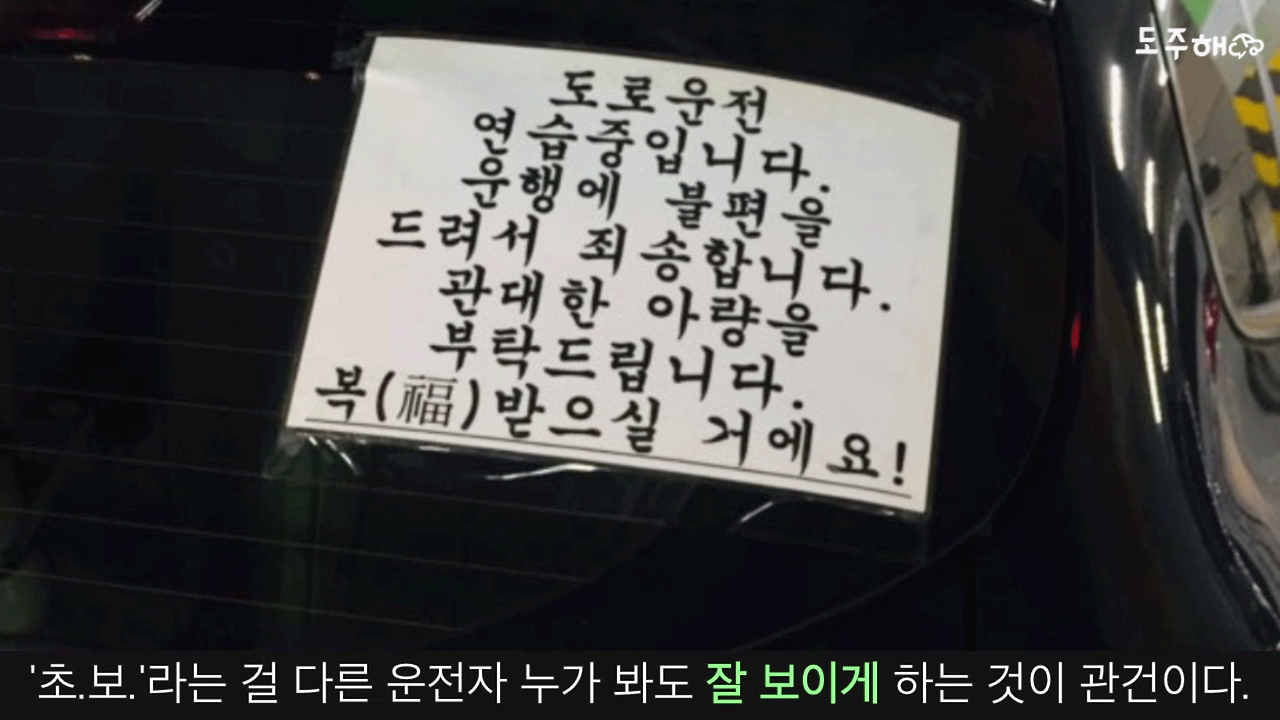 도주해
도로운전
연습중입니다.
운행에 불편을
드려서 죄송합니다.
관대한 아량을
부탁드립니다.
복(福)받으실 거에요!
'초.보.'라는 걸 다른 운전자 누가 봐도 잘 보이게 하는 것이 관건이다.